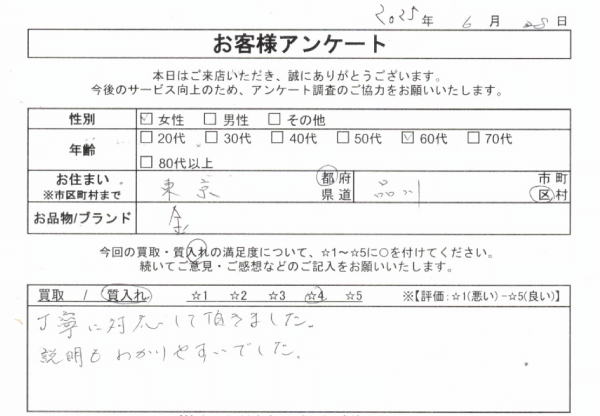 2025年 6月 8日
お客様アンケート
本日はご来店いただき、誠にありがとうございます。
今後のサービス向上のため、アンケート調査のご協力をお願いいたします。
性別 ☑女性 □男性 □その他
年齢 □20代 □30代 □40代 □50代 ☑60代 □70代
□80代以上
お住まい ※市区町村まで 東京 都府県道 品川 市町区村
お品物/ブランド 金
今回の買取・質入れの満足度について、☆1~☆5に○を付けてください。
続いてご意見・ご感想などのご記入をお願いいたします。
買取 / 質入れ ☆1 ☆2 ☆3 ☆4 ☆5 ※【評価:☆1(悪い)-☆5(良い)】
丁寧に対応して頂きました。
説明もわかりやすいでした。